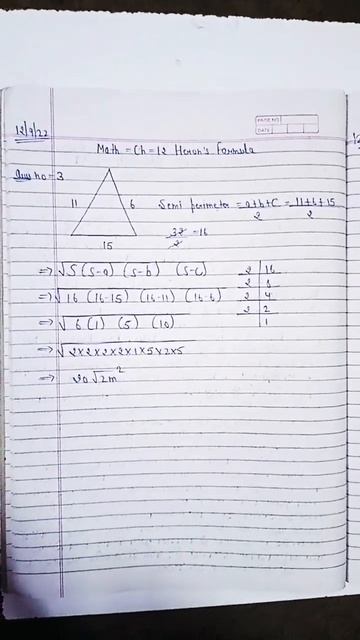 PAGE NO.
DATE
12/9/22
Math = Ch = 12 Heron's Formula
Ques no - 3
11
6
15
Semi perimeter = a+b+c/2 = 11+6+15/2
32/2 = 16
⇒ √S (s-a) (s-b) (s-c)
2 | 16
2 | 8
⇒ √16 (16-15) (16-11) (16-6)
2 | 4
2 | 2
⇒ √6 (1) (5) (10)
1
⇒ √2×2×2×2×1×5×2×5
⇒ 20√2m²